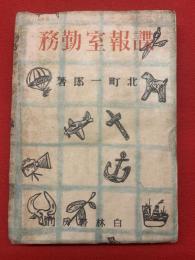 諜報室勤務
北町一郎著
白林書房刊